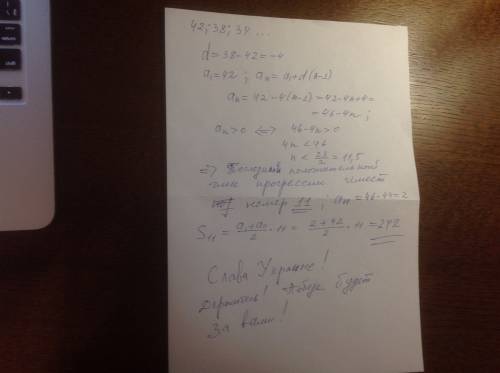 42; 38; 34 ...
d = 38 - 42 = -4
a₁ = 42 ; aₙ = a₁ + d(n-1)
aₙ = 42 - 4(n-1) = 42 - 4n + 4 =
= 46 - 4n ;
aₙ > 0 <=> 46 - 4n > 0
4n < 46
n < 23/2 = 11,5
=> Последний положительной
член прогрессии имеет
номер 11 ; a₁₁ = 46 - 44 = 2
S₁₁ = (a₁ + a₁₁)/2 · 11 = (2 + 42)/2 · 11 = 242
Слава Украине!
Держитесь! Победа будет
За вами!